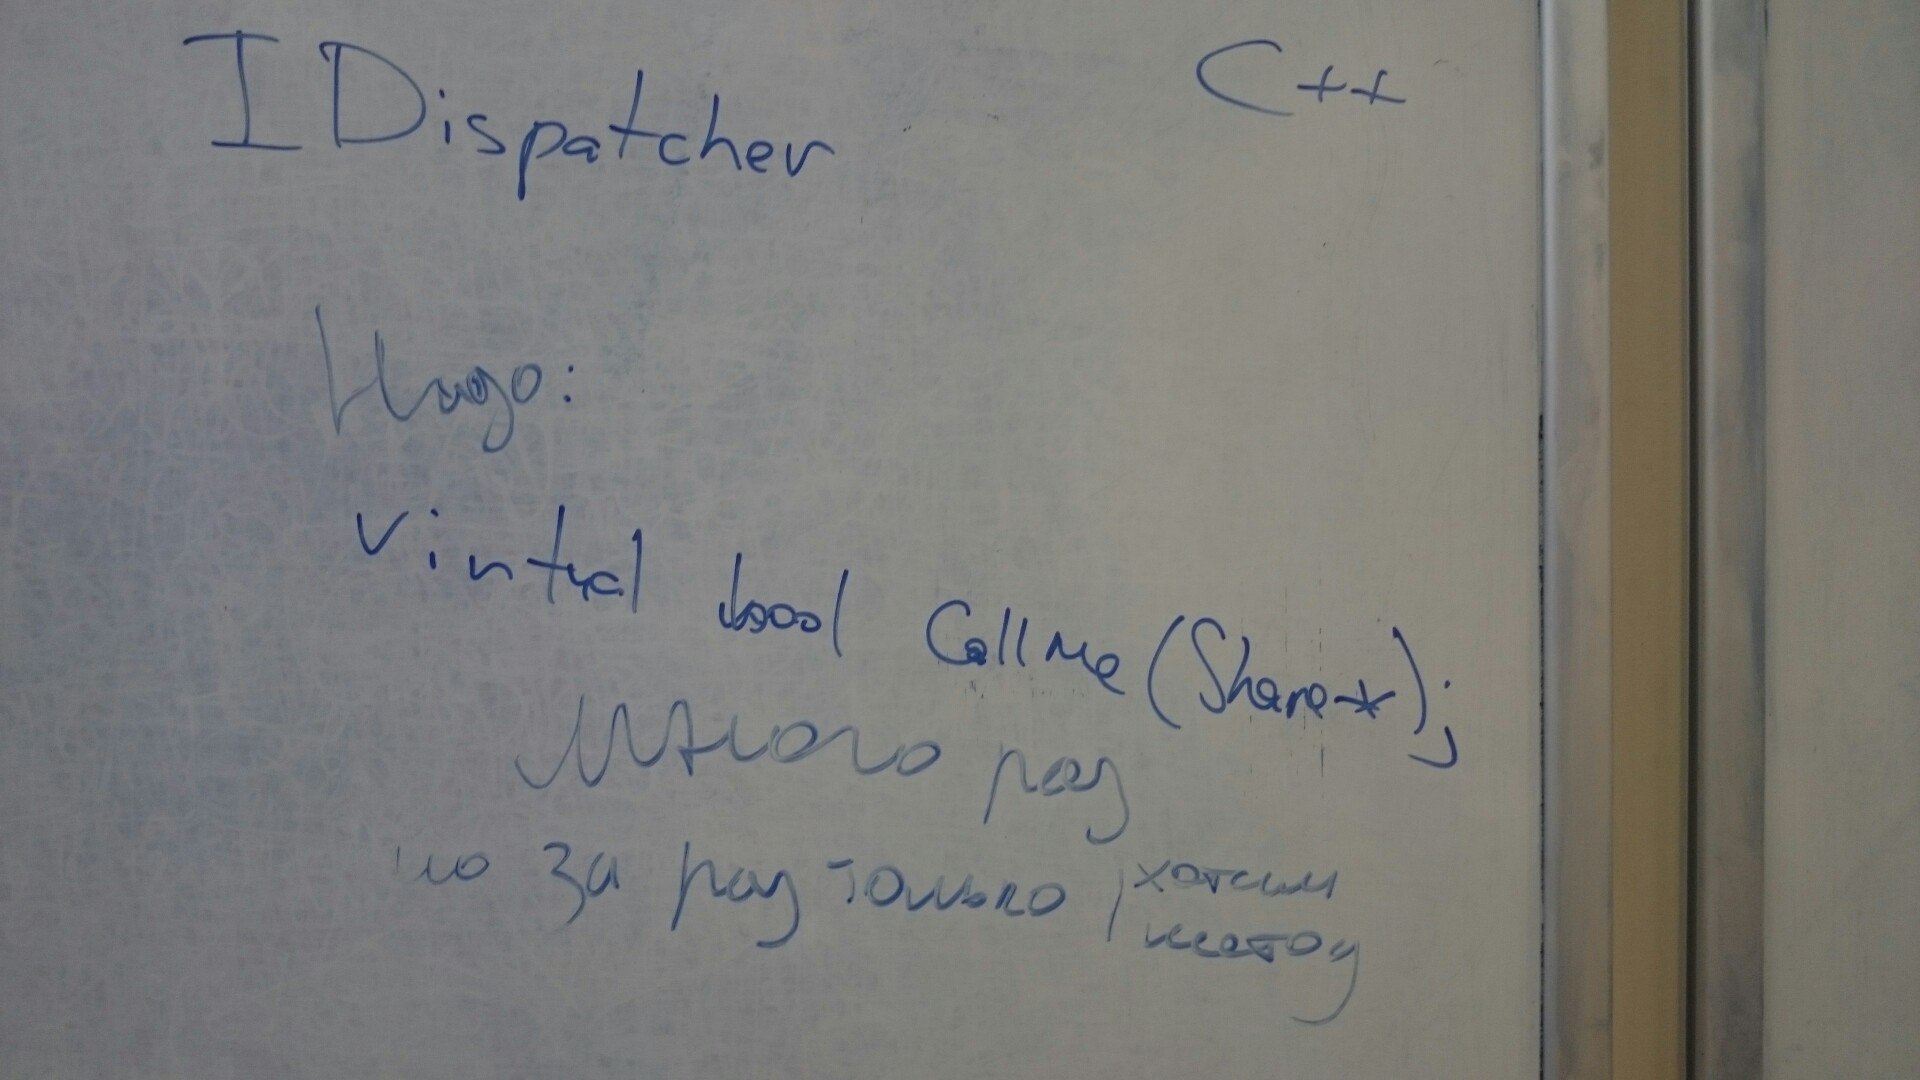 IDispatcher C++
Надо:
vintual bool CallMe(Share*);
Много раз
но за раз только 1 хотим
метод